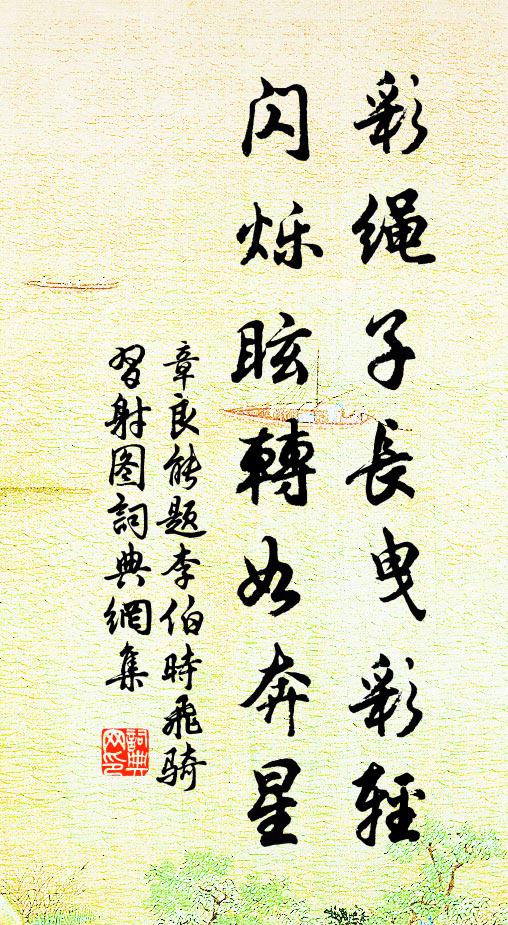 彩绳子長曳彩輕
闪烁眩轉如奔星
章良能题李伯時飛骑
習射图詞典網集
詞典网印